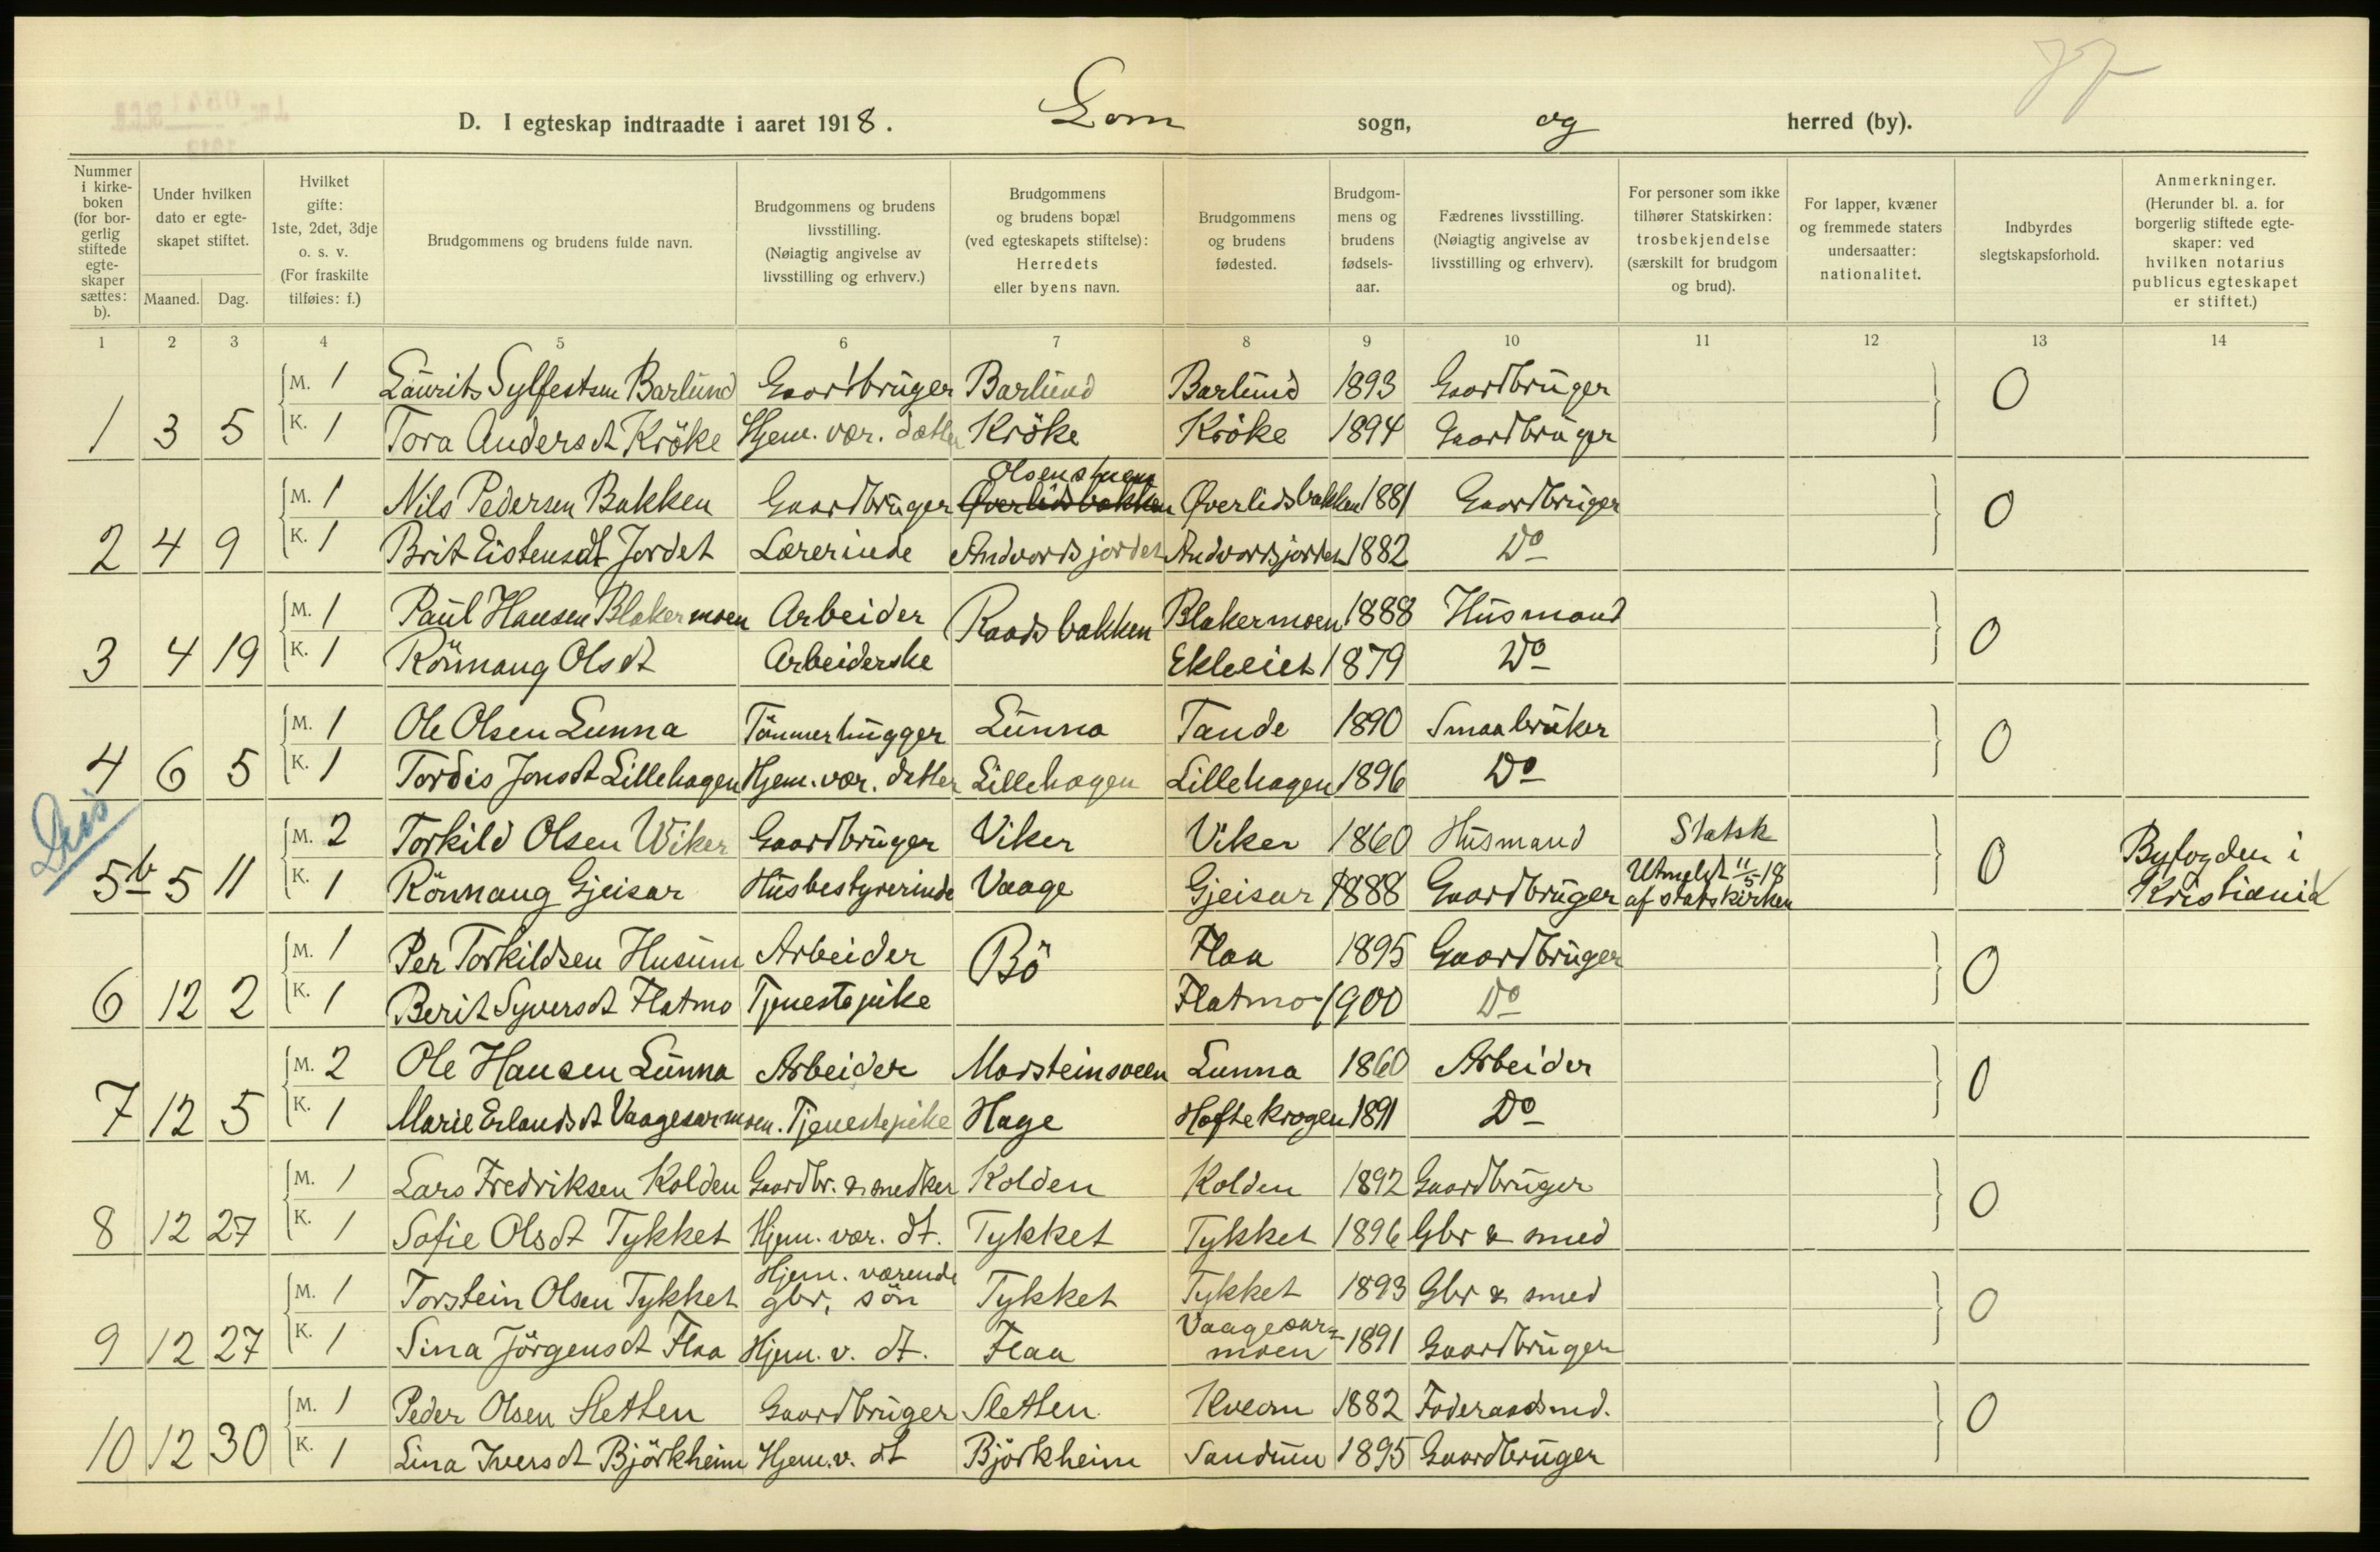 D. I egteskap indtraadte i aaret 1918. Lom sogn, og herred (by).
Nummer i kirkeboken (for borgerlig stiftede egteskaper sættes: b).
Under hvilken dato er egteskapet stiftet.
Maaned. Dag.
Hvilket gifte: 1ste, 2det, 3dje o. s. v. (For fraskilte tilføies: f.)
Brudgommens og brudens fulde navn.
Brudgommens og brudens livsstilling. (Nøiagtig angivelse av livsstilling og erhverv.)
Brudgommens og brudens bopæl (ved egteskapets stiftelse): Herredets eller byens navn.
Brudgommens og brudens fødested.
Brudgommens og brudens fødselsaar.
Fædrenes livsstilling. (Nøiagtig angivelse av livsstilling og erhverv).
For personer som ikke tilhører Statskirken: trosbekjendelse (særskilt for brudgom og brud).
For lapper, kvæner og fremmede staters undersaatter: nationalitet.
Indbyrdes slegtskapsforhold.
Anmerkninger. (Herunder bl. a. for borgerlig stiftede egteskaper: ved hvilken notarius publicus egteskapet er stiftet.)
1 2 3 4 5 6 7 8 9 10 11 12 13 14
M. 1 Laurits Sylfestsen Barlund Gaardbruger Barlund Barlund 1893 Gaardbruger 0
1 3 5 K. 1 Tora Andersdt Kröke Hjem. vær. datter Kröke Kröke 1894 Gaardbruger
Olsenstuen
M. 1 Nils Pedersen Bakken Gaardbruger Øverlidsbakken Øverlidsbakken 1881 Gaardbruger 0
2 4 9 K. 1 Brit Eistensdt Jordet Lærerinde Andvordsjordet Andvordsjordet 1882 Do
M. 1 Paul Hansen Blakermoen Arbeider Raadsbakken Blakermoen 1888 Husmand 0
3 4 19 K. 1 Rönnaug Olsdt Arbeiderske Ekleeiet 1879 Do
M. 1 Ole Olsen Lunna Tömmerhugger Lunna Tande 1890 Smaabruker 0
4 6 5 K. 1 Tordis Jonsdt Lillehagen Hjem. vær. datter Lillehagen Lillehagen 1896 Do
M. 2 Torkild Olsen Wiker Gaardbruger Viker Viker 1860 Husmand Statsk 0 Byfogden i
5b 5 11 K. 1 Rönnaug Gjeisar Husbestyrerinde Vaage Gjeisar 1888 Gaardbruger Utmeldt 11/5-18 af statskirken Kristiania
M. 1 Per Torkildsen Husum Arbeider Bö Flaa 1895 Gaardbruger 0
6 12 2 K. 1 Berit Syversdt Flatmo Tjenestepike Flatmo 1900 Do
M. 2 Ole Hansen Lunna Arbeider Marsteinsveen Lunna 1860 Arbeider 0
7 12 5 K. 1 Marie Erlandsdt Vaagesarmoen. Tjenestepike Hage Hoftekrogen 1891 Do
M. 1 Lars Fredriksen Kolden Gaardbr. & snedker Kolden Kolden 1892 Gaardbruger 0
8 12 27 K. 1 Sofie Olsdt Tykket Hjem. vær. dt. Tykket Tykket 1896 Gbr & smed
M. 1 Torstein Olsen Tykket Hjem. værende gbr. sön Tykket Tykket 1893 Gbr & smed 0
9 12 27 K. 1 Sina Jörgensdt Flaa Hjem. v. dt. Flaa Vaagesarmoen 1891 Gaardbruger
M. 1 Peder Olsen Sletten Gaardbruger Sletten Kveom 1882 Föderaadsmd. 0
10 12 30 K. 1 Lina Iversdt Björkheim Hjem. v. dt Björkheim Sandum 1895 Gaardbruger